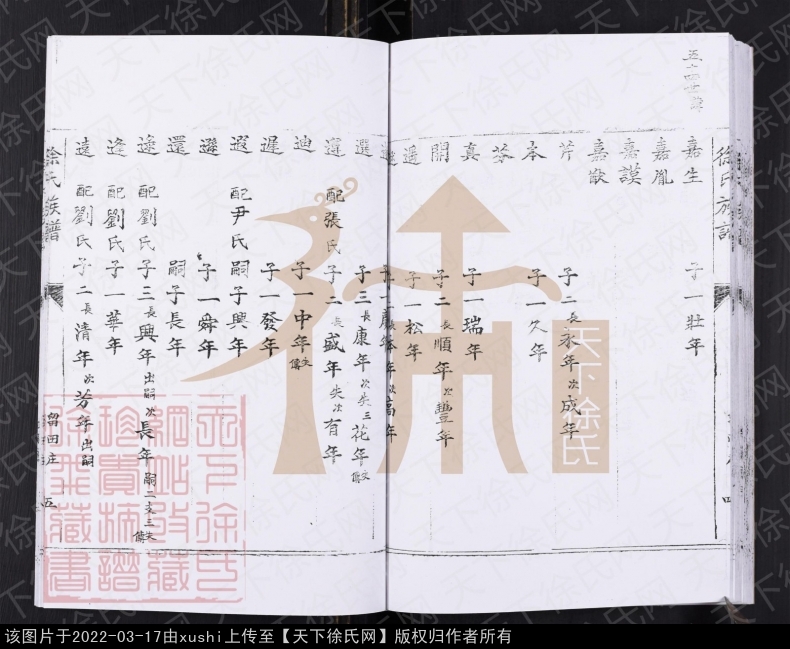 徐氏族譜
嘉生 子一壯年
嘉胤
嘉謨
嘉猷
芹 子二長永年次成年
本 子一久年
恭
真 子一瑞年
開 子二長順年次豐年
遥 子一松年
選 子三長康年次失三花年
選 配張氏子二長盛年失次有年
迪 子一中年
遲 子一發年
遐 配尹氏嗣子興年
遴 子一舜年
還 嗣子長年
遂 配劉氏子三長興年出嗣次長年嗣二
逢 配劉氏子一華年
遠 配劉氏子二長清年次芳年出嗣
徐氏族譜
留田庄
五
天下徐氏
天下徐氏网
该图片于2022-03-17由xushi上传至【天下徐氏网】版权归作者所有